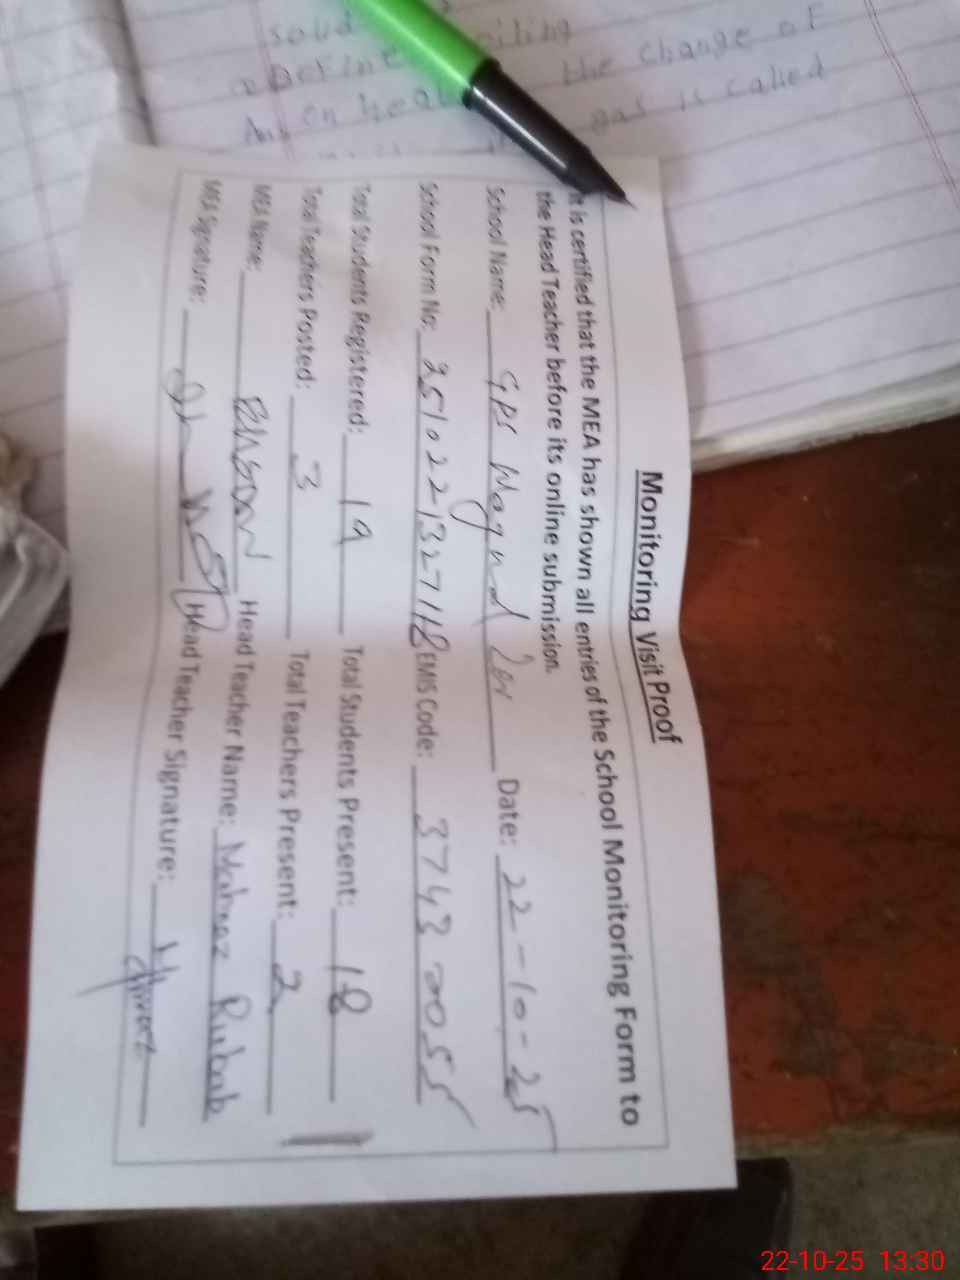 solid
Define boiling
Ans on heat the change of
gas is called
Monitoring Visit Proof
It is certified that the MEA has shown all entries of the School Monitoring Form to
the Head Teacher before its online submission.
School Name: GPS Date: 22-10-25
School Form No: 251022132718 EMIS Code: 37430055
Total Students Registered: 19 Total Students Present: 18
Total Teachers Posted: 3 Total Teachers Present: 2
MEA Name: Head Teacher Name: Rubab
MEA Signature: Head Teacher Signature:
22-10-25 13:30